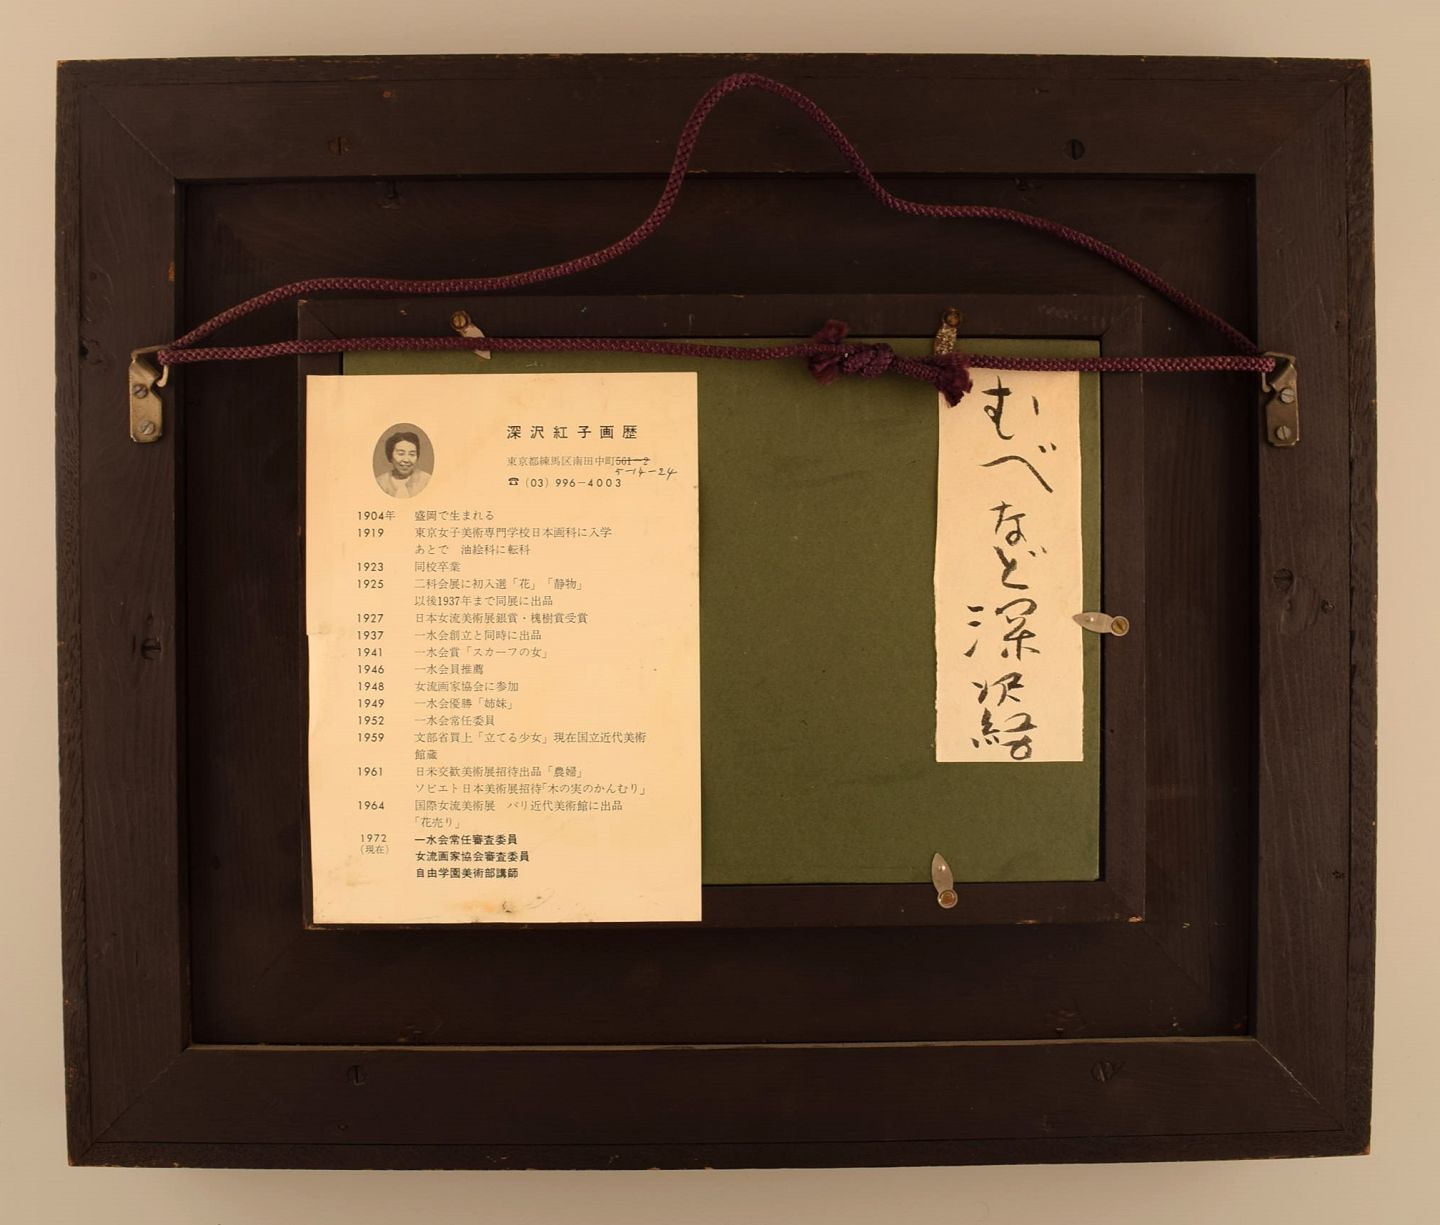 深沢紅子画歴
東京都練馬区南田中町561-2
5-14-24
☎ (03) 996-4003
1904年 盛岡で生まれる
1919 東京女子美術専門学校日本画科に入学
あとで 油絵科に転科
1923 同校卒業
1925 二科会展に初入選「花」「静物」
以後1937年まで同展に出品
1927 日本女流美術展銀賞・槐樹賞受賞
1937 一水会創立と同時に出品
1941 一水会賞「スカーフの女」
1946 一水会員推薦
1948 女流画家協会に参加
1949 一水会優勝「姉妹」
1952 一水会常任委員
1959 文部省買上「立てる少女」現在国立近代美術
館蔵
1961 日米交歓美術展招待出品「農婦」
ソビエト日本美術展招待「木の実のかんむり」
1964 国際女流美術展 パリ近代美術館に出品
「花売り」
1972 一水会常任審査委員
(現在) 女流画家協会審査委員
自由学園美術部講師
むべなど 深沢紅子